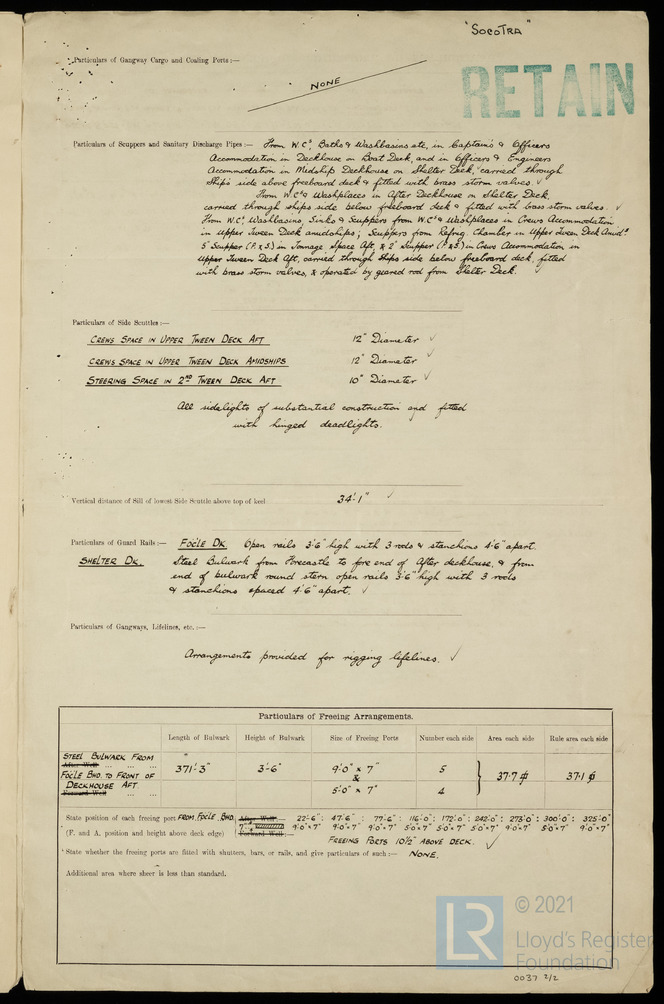 "SOCOTRA"
RETAIN
Particulars of Gangway Cargo and Coaling Ports :—
NONE
Particulars of Scuppers and Sanitary Discharge Pipes :— From W.C's, Baths & Washbasins etc, in Captain's & Officers
Accommodation in Deckhouse on Boat Deck, and in Officers & Engineers
Accommodation in Midship Deckhouse on Shelter Deck, carried through
Ship's side above freeboard deck & fitted with brass storm valves. ✓
From W.C's & Washplaces in After Deckhouse on Shelter Deck,
carried through ships side below freeboard deck & fitted with brass storm valves. ✓
From W.C's, Washbasins, Sinks & Scuppers from W.C's & Washplaces in Crews Accommodation
in Upper Tween Deck amidships; Scuppers from Refrig. Chamber in Upper Tween Deck Amids.
5" Scupper (P.&S.) in Tonnage Space Aft, & 2" Scupper (P.&S.) in Crews Accommodation in
Upper Tween Deck Aft, carried through Ships side below freeboard deck, fitted
with brass storm valves, & operated by geared rod from Shelter Deck. ✓
Particulars of Side Scuttles :—
CREWS SPACE IN UPPER TWEEN DECK AFT 12" Diameter ✓
CREWS SPACE IN UPPER TWEEN DECK AMIDSHIPS 12" Diameter ✓
STEERING SPACE IN 2ND TWEEN DECK AFT 10" Diameter ✓
All sidelights of substantial construction and fitted
with hinged deadlights.
Vertical distance of Sill of lowest Side Scuttle above top of keel 34'-1" ✓
Particulars of Guard Rails :— FOC'LE DK. Open rails 3'6" high with 3 rods & stanchions 4'6" apart.
SHELTER DK. Steel Bulwark from Forecastle to fore end of After deckhouse, & from
end of bulwark round stern open rails 3'6" high with 3 rods
& stanchions spaced 4'6" apart. ✓
Particulars of Gangways, Lifelines, etc. :—
Arrangements provided for rigging lifelines. ✓
Particulars of Freeing Arrangements.
Length of Bulwark Height of Bulwark Size of Freeing Ports Number each side Area each side Rule area each side
STEEL BULWARK FROM
After Well ... ... ...
FOC'LE BHD. TO FRONT OF
DECKHOUSE AFT
Forward Well ... ...
371'-3" 3'-6" 9'-0" × 7" 5
&
5'-0" × 7" 4
37·7 ⌗ 37·1 ⌗
State position of each freeing port FROM FOC'LE BHD. After Well:— 22'-6" : 47'-6" : 77'-6" : 116'-0" : 172'-0" : 242'-0" : 273'-0" : 300'-0" : 325'-0"
(F. and A. position and height above deck edge) Forward Well:— 9'-0"×7" 9'-0"×7" 9'-0"×7" 5'-0"×7" 5'-0"×7" 5'-0"×7" 9'-0"×7" 5'-0"×7" 9'-0"×7"
FREEING PORTS 10½" ABOVE DECK. ✓
State whether the freeing ports are fitted with shutters, bars, or rails, and give particulars of such :— NONE.
Additional area where sheer is less than standard.
LR
© 2021
Lloyd's Register
Foundation
0037 2/2